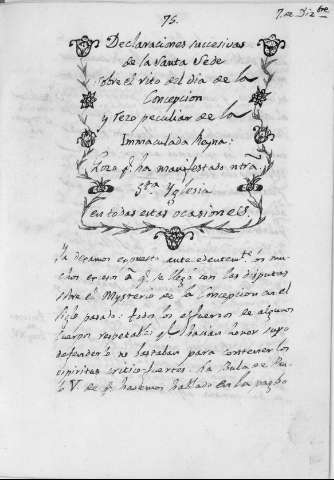 75.
7. de Dizbre
Declaraciones successivas
de la Santa Sede
sobre el rito del dia de la
Concepcion
y rezo peculiar de la
Immaculada Reyna:
Gozo q.e ha manifestado ntrâ
Sta. Yglesia
en todas estas ocasiones.
Ya dexamos expuesto antecedentemte. los mu-
chos excesos â q.e se llegò con las disputas
sobre el Mysterio de la Concepcion en el
siglo pasado: todos los esfuerzos de algunos
cuerpos respetables q.e hacian honor suyo
defenderlo no bastaban para contener los
espiritus critico-fuertes. La Bula de Pau-
lo V. de q.e hacemos hablado en la